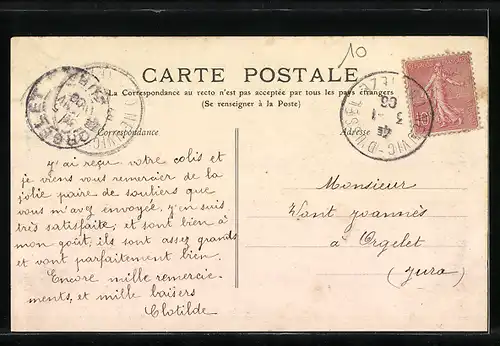 10
CARTE POSTALE
La Correspondance au recto n'est pas acceptée par tous les pays étrangers
(Se renseigner à la Poste)
Correspondance
Adresse
ORGELET
JURA
3 -1
08
10
J'ai reçu votre colis et
je viens vous remercier de la
jolie paire de souliers que
vous m'avez envoyée, j'en suis
très satisfaite, et sont bien à
mon goût, ils sont assez grands
et vont parfaitement bien.
Encore mille remercie-
ments, et mille baisers
Clotilde
Monsieur
Vant Joannès
à Orgelet
(Jura)